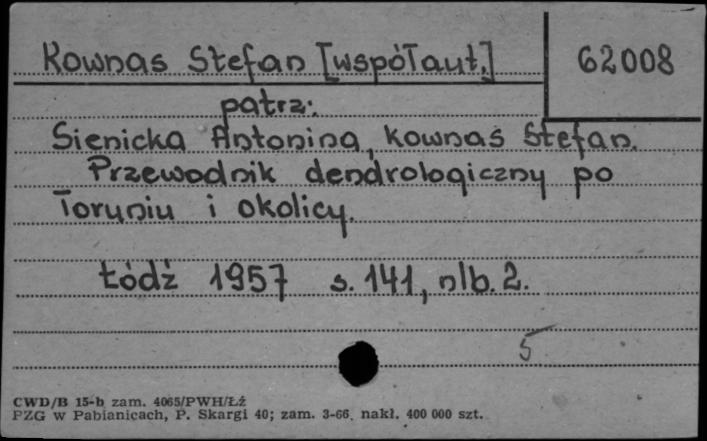 Kownas Stefan [współaut.]
62008
patrz:
Sienicka Antonina, Kownas Stefan.
Przewodnik dendrologiczny po
Toruniu i okolicy.
Łódź 1957 s. 141, nlb. 2.
5
CWD/B 15-b zam. 4065/PWH/ŁŻ
PZG w Pabianicach, P. Skargi 40; zam. 3-66. nakł. 400 000 szt.